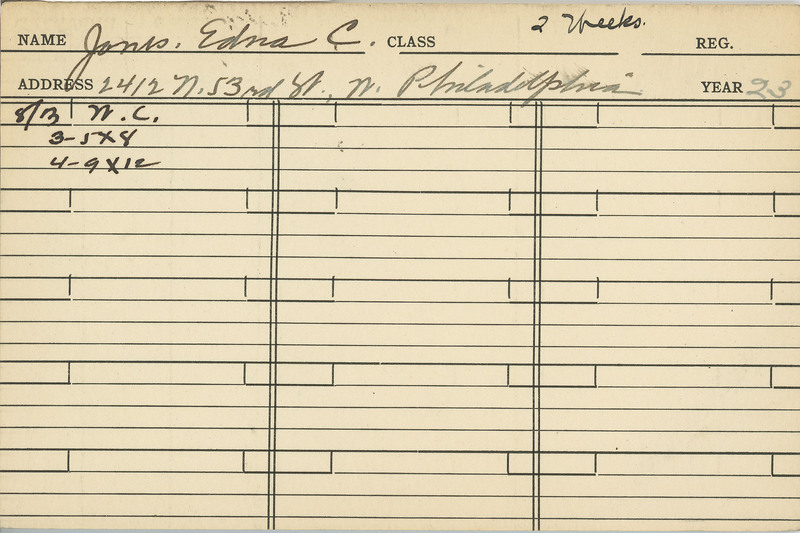 2 Weeks.
NAME Jones. Edna C. CLASS REG.
ADDRESS 2412 N. 53rd St., W. Philadelphia YEAR 23
8/3 W. C.
3-5X8
4-9X12